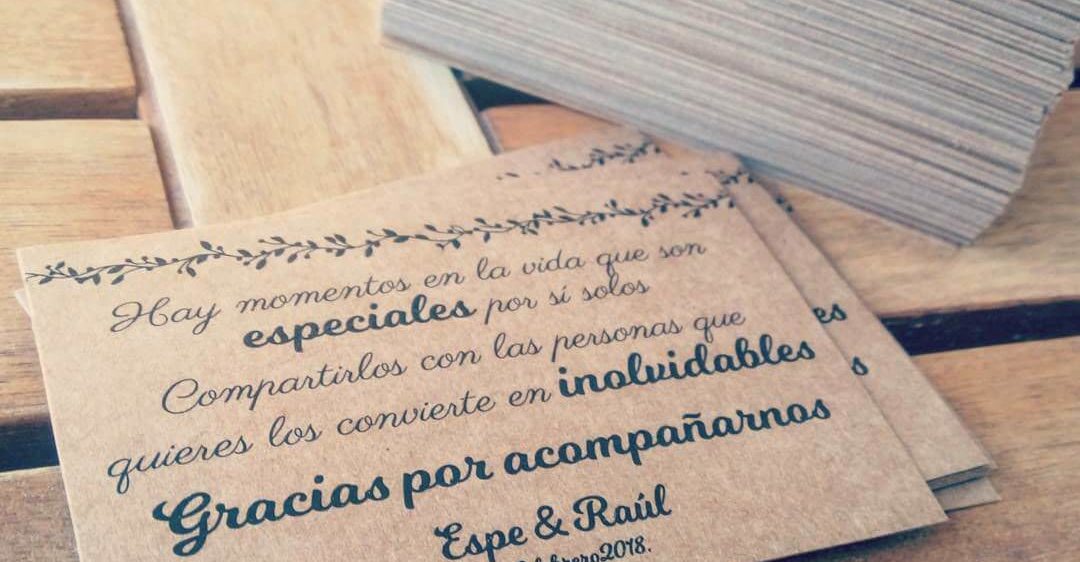 Hay momentos en la vida que son
especiales por sí solos
Compartirlos con las personas que
quieres los convierte en inolvidables
Gracias por acompañarnos
Espe & Raúl
2018.
es
s